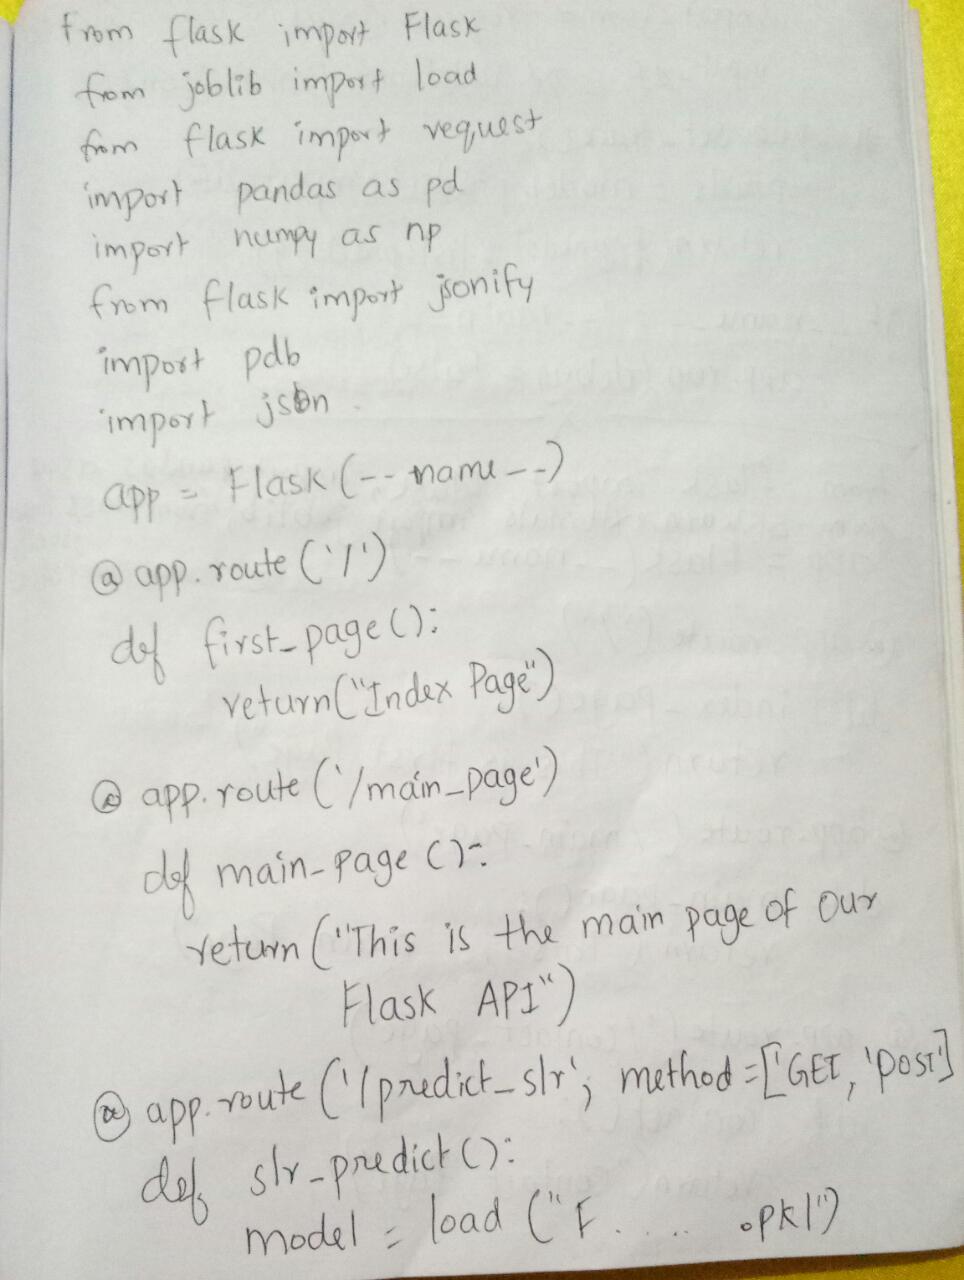 from flask import Flask
from joblib import load
from flask import request
import pandas as pd
import numpy as np
from flask import jsonify
import pdb
import json
app = Flask (--name--)
@ app.route ('/')
def first_page():
return("Index Page")
@ app.route ('/main_page')
def main_page ():
return ("This is the main page of our
Flask API")
@ app.route ('/predict_slr'; method=['GET, 'POST']
def slr_predict():
model = load ("F. .... .pkl")